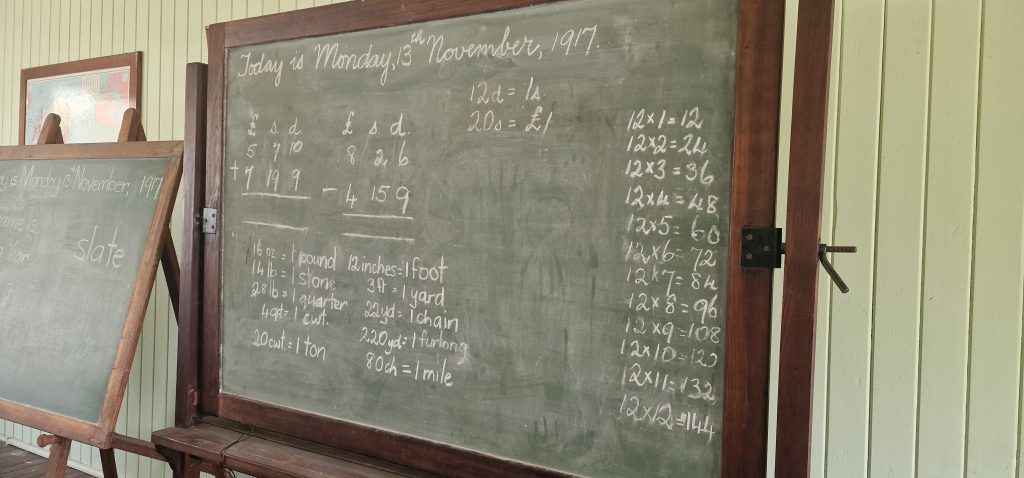 Today is Monday, 13th November, 1917.
12d = 1s
20s = £1
£ s. d.
5 7 10
+ 7 19 9
£ s. d.
8 2 6
- 4 15 9
16 oz = 1 pound
14 lb = 1 stone
28 lb = 1 quarter
4 qt = 1 cwt.
20 cwt = 1 ton
12 inches = 1 foot
3 ft = 1 yard
22 yd = 1 chain
220 yd = 1 furlong
80 ch = 1 mile
12×1 = 12
12×2 = 24
12×3 = 36
12×4 = 48
12×5 = 60
12×6 = 72
12×7 = 84
12×8 = 96
12×9 = 108
12×10 = 120
12×11 = 132
12×12 = 144
is Monday 13 November, 1917
slate